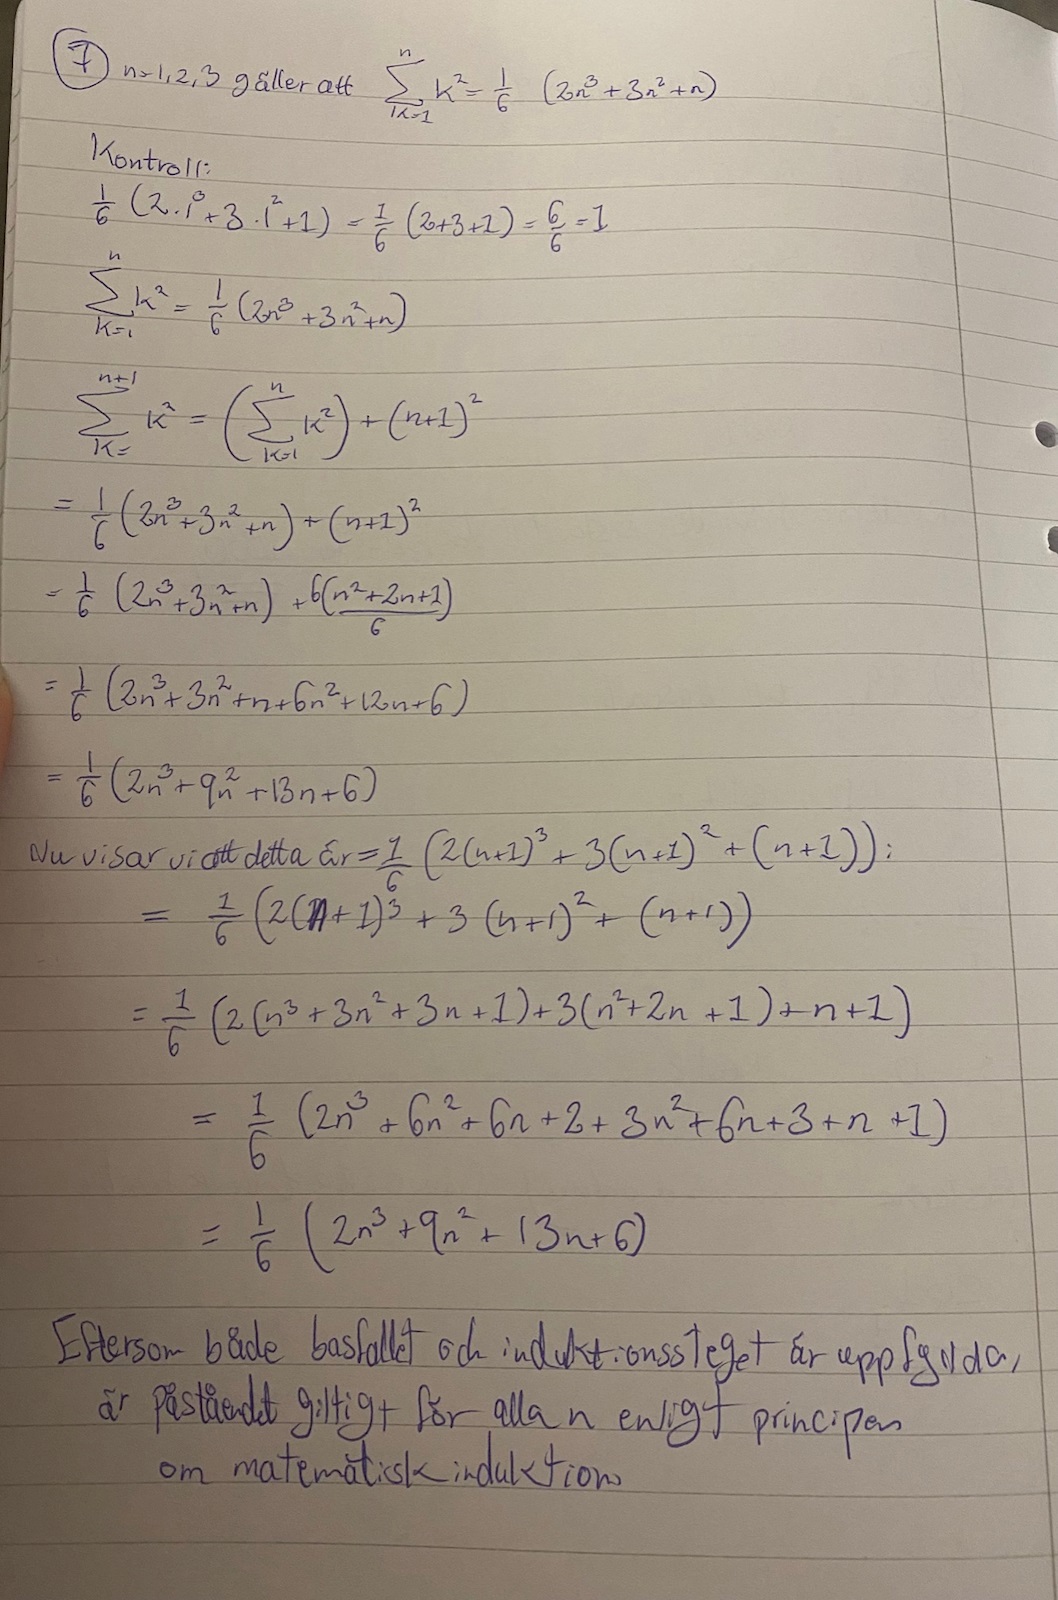 7 n=1,2,3 gäller att \sum_{k=1}^{n} k² = 1/6 (2n³+3n²+n)
Kontroll:
1/6 (2·1³+3·1²+1) = 1/6 (2+3+1) = 6/6 = 1
\sum_{k=1}^{n} k² = 1/6 (2n³+3n²+n)
\sum_{k=}^{n+1} k² = (\sum_{k=1}^{n} k²) + (n+1)²
= 1/6 (2n³+3n²+n) + (n+1)²
= 1/6 (2n³+3n²+n) + 6(n²+2n+1)/6
= 1/6 (2n³+3n²+n+6n²+12n+6)
= 1/6 (2n³+9n²+13n+6)
Nu visar vi att detta är = 1/6 (2(n+1)³ + 3(n+1)² + (n+1)):
= 1/6 (2(n+1)³ + 3(n+1)² + (n+1))
= 1/6 (2(n³+3n²+3n+1)+3(n²+2n+1)+n+1)
= 1/6 (2n³+6n²+6n+2+3n²+6n+3+n+1)
= 1/6 (2n³+9n²+13n+6)
Eftersom både basfallet och induktionssteget är uppfyllda,
är påståendet giltigt för alla n enligt principen
om matematisk induktion